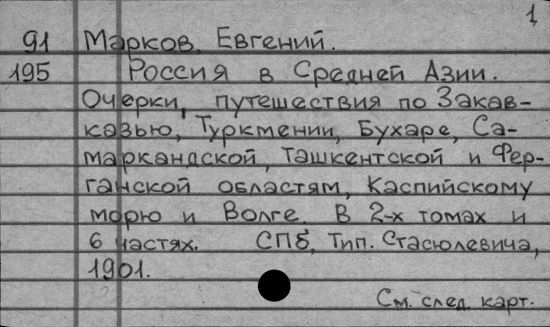 1
91 Марков, Евгений.
195 Россия в Средней Азии.
Очерки, путешествия по Закав-
казью, Туркмении, Бухаре, Са-
маркандской, Ташкентской и Фер-
ганской областям, Каспийскому
морю и Волге. В 2-х томах и
6 частях. СПб, Тип. Стасюлевича,
1901.
См. след. карт.